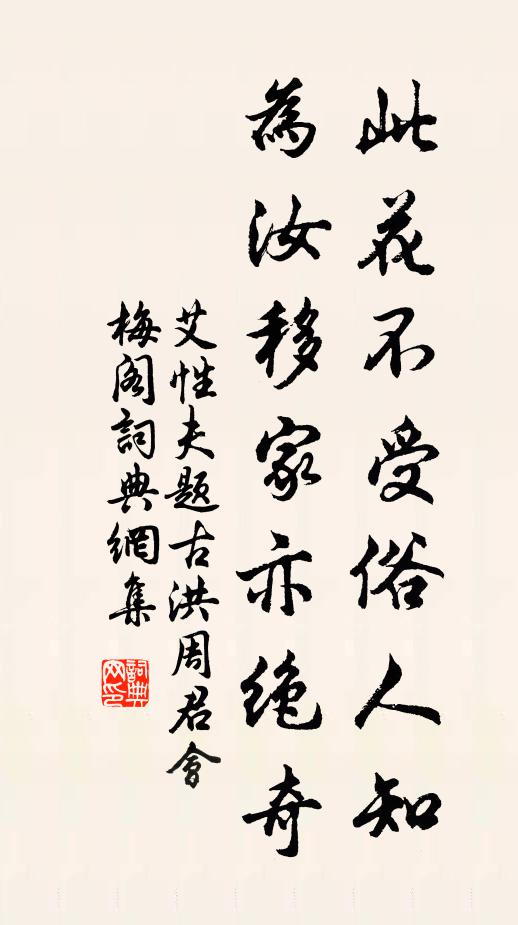 此花不受俗人知
為汝移家亦絶奇
艾性夫題古洪周君會
梅閣詞典網集
詞典網印